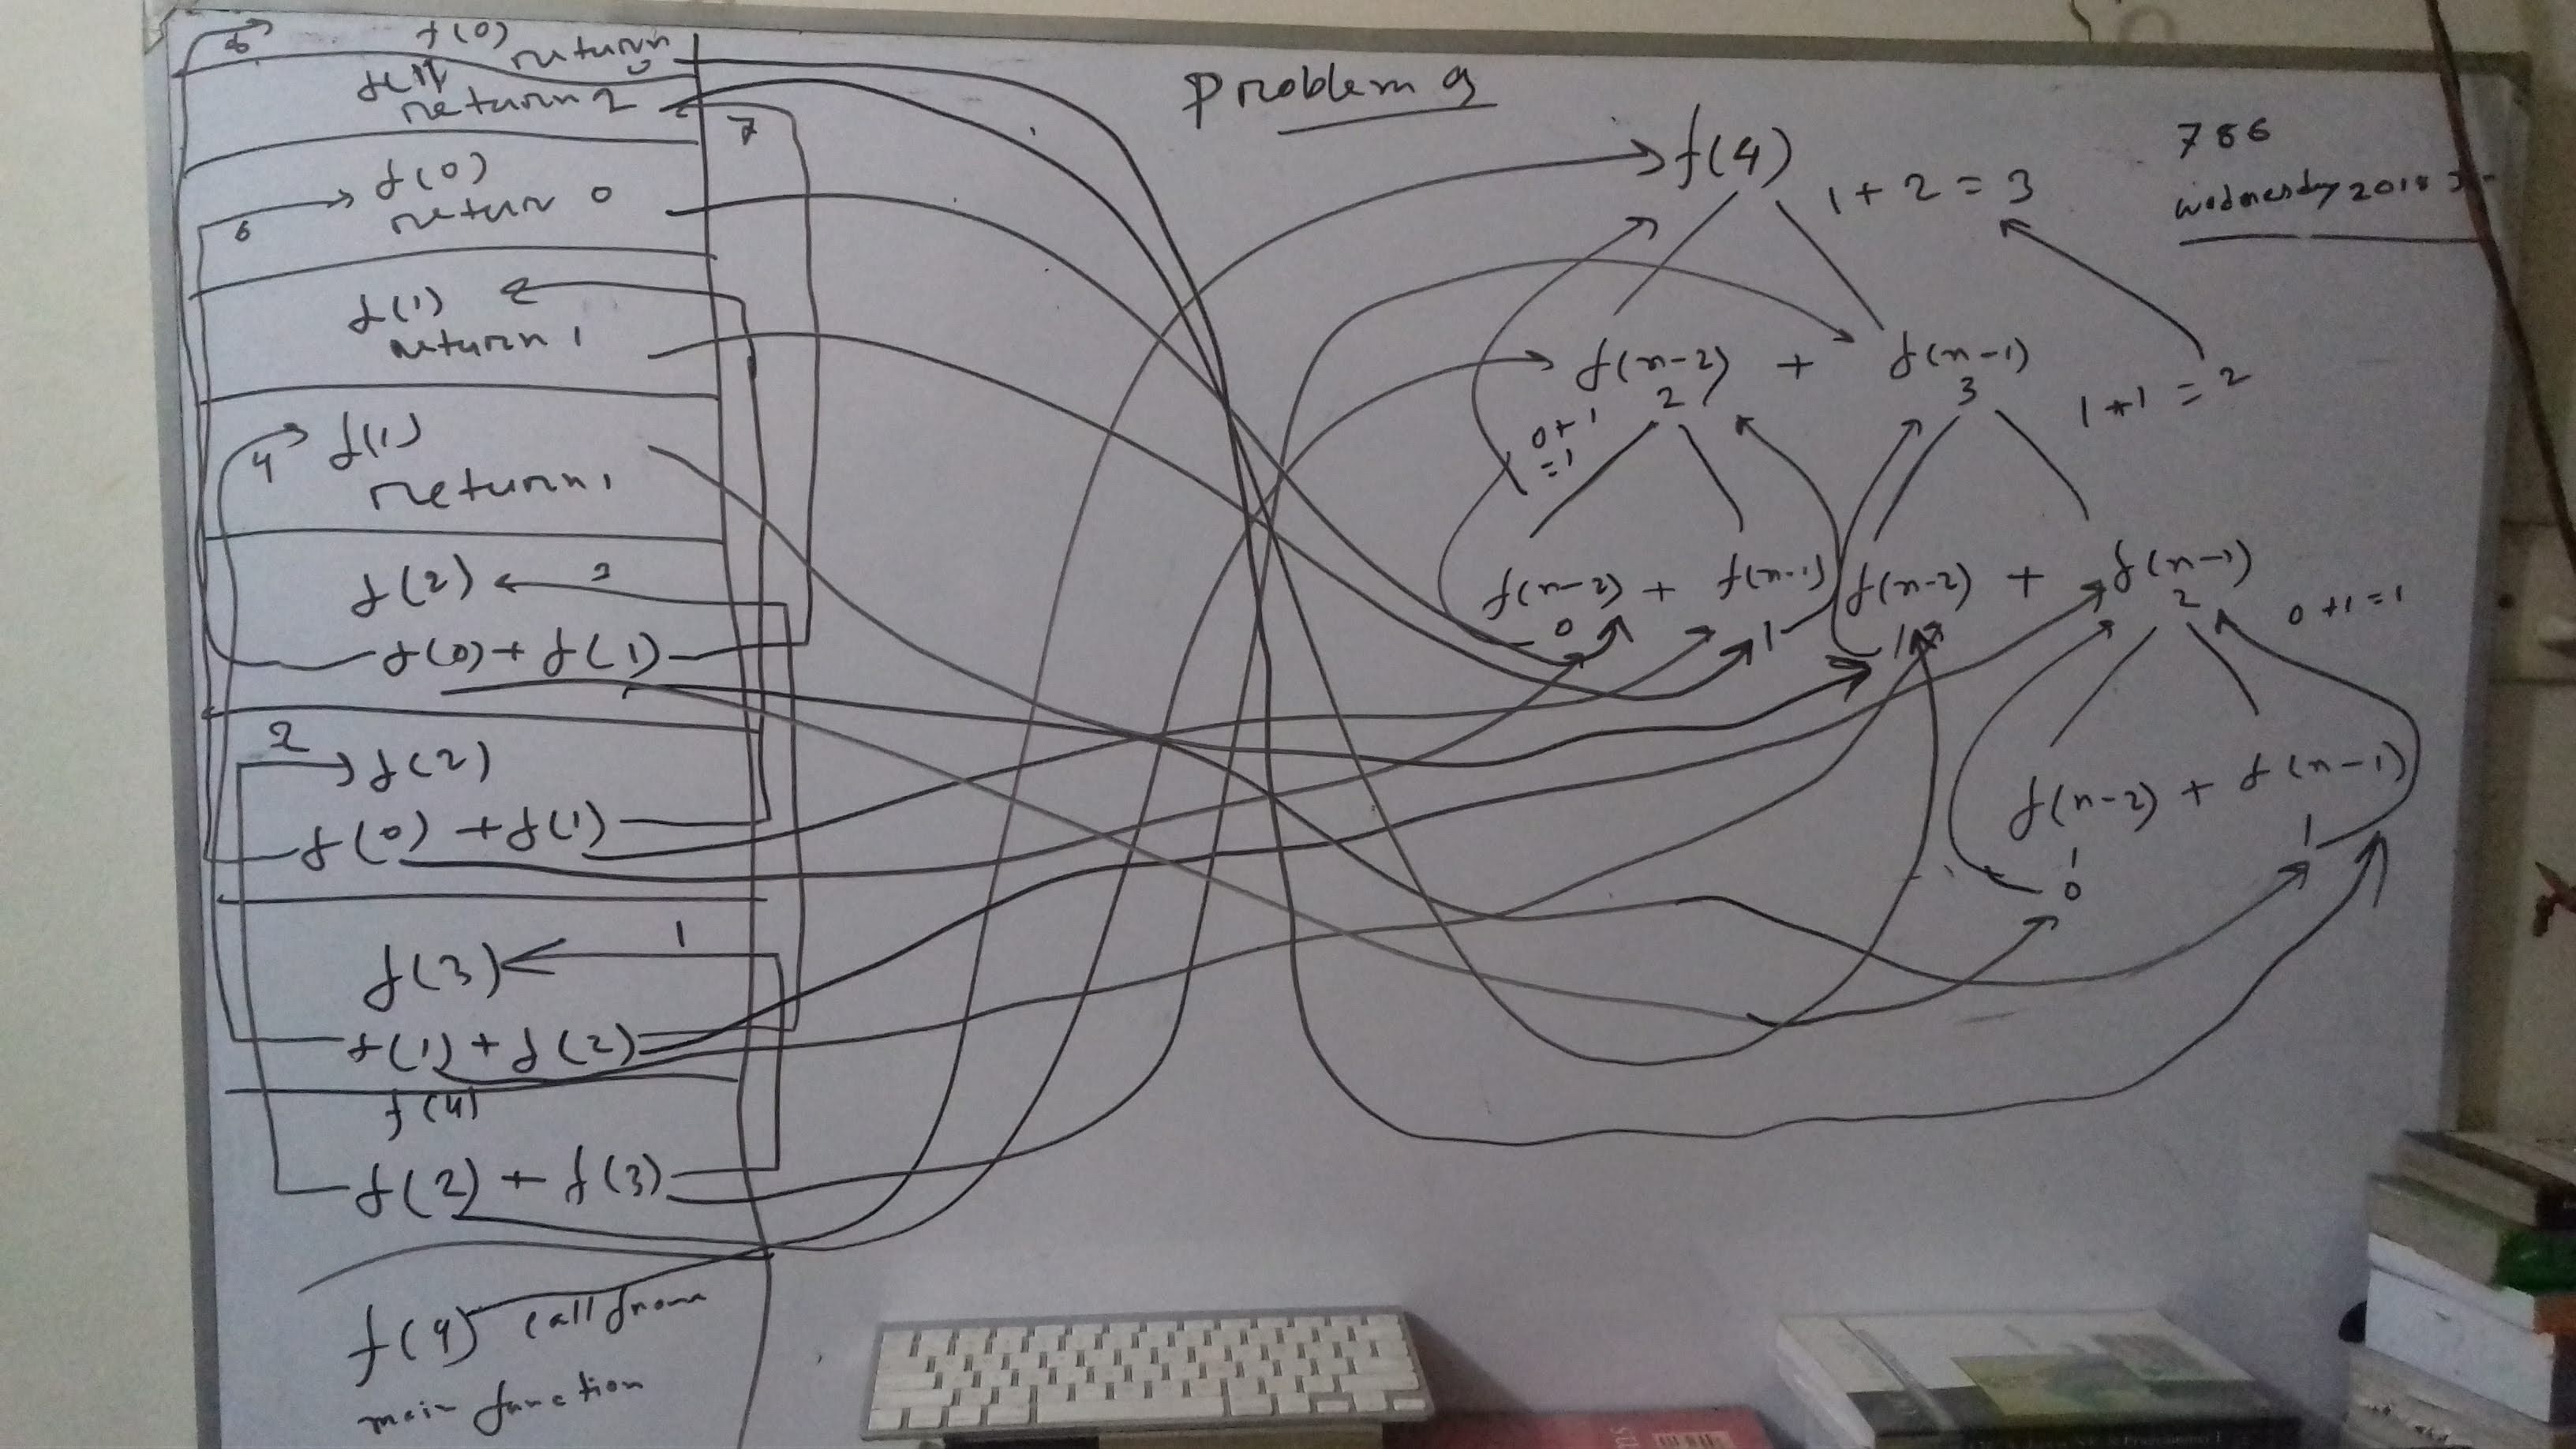 8
f(0)
return
f(1)
return 2
7
f(0)
return 0
6
f(1)
return 1
4
f(1)
return 1
f(2)
3
f(0) + f(1)
2
f(2)
f(0) + f(1)
f(3)
1
f(1) + f(2)
f(4)
f(2) + f(3)
f(4) call from
main function
Problem 9
f(4)
1 + 2 = 3
786
wednesday 2018
f(n-2) + f(n-1)
2
3
1 + 1 = 2
0 + 1
= 1
f(n-2) + f(n-1)
0
1
f(n-2) + f(n-1)
1
2
0 + 1 = 1
f(n-2) + f(n-1)
0
1